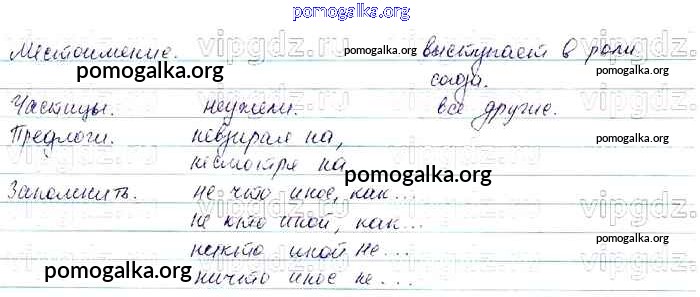 pomogalka.org
Местоимение. выступает в роли
союза.
Частицы. неужели. все другие.
Предлоги. невзирая на,
несмотря на
Запомнить. не что иное, как...
не кто иной, как...
никто иной не...
ничто иное не...
pomogalka.org
pomogalka.org
pomogalka.org
pomogalka.org
pomogalka.org
pomogalka.org
vipgdz.ru